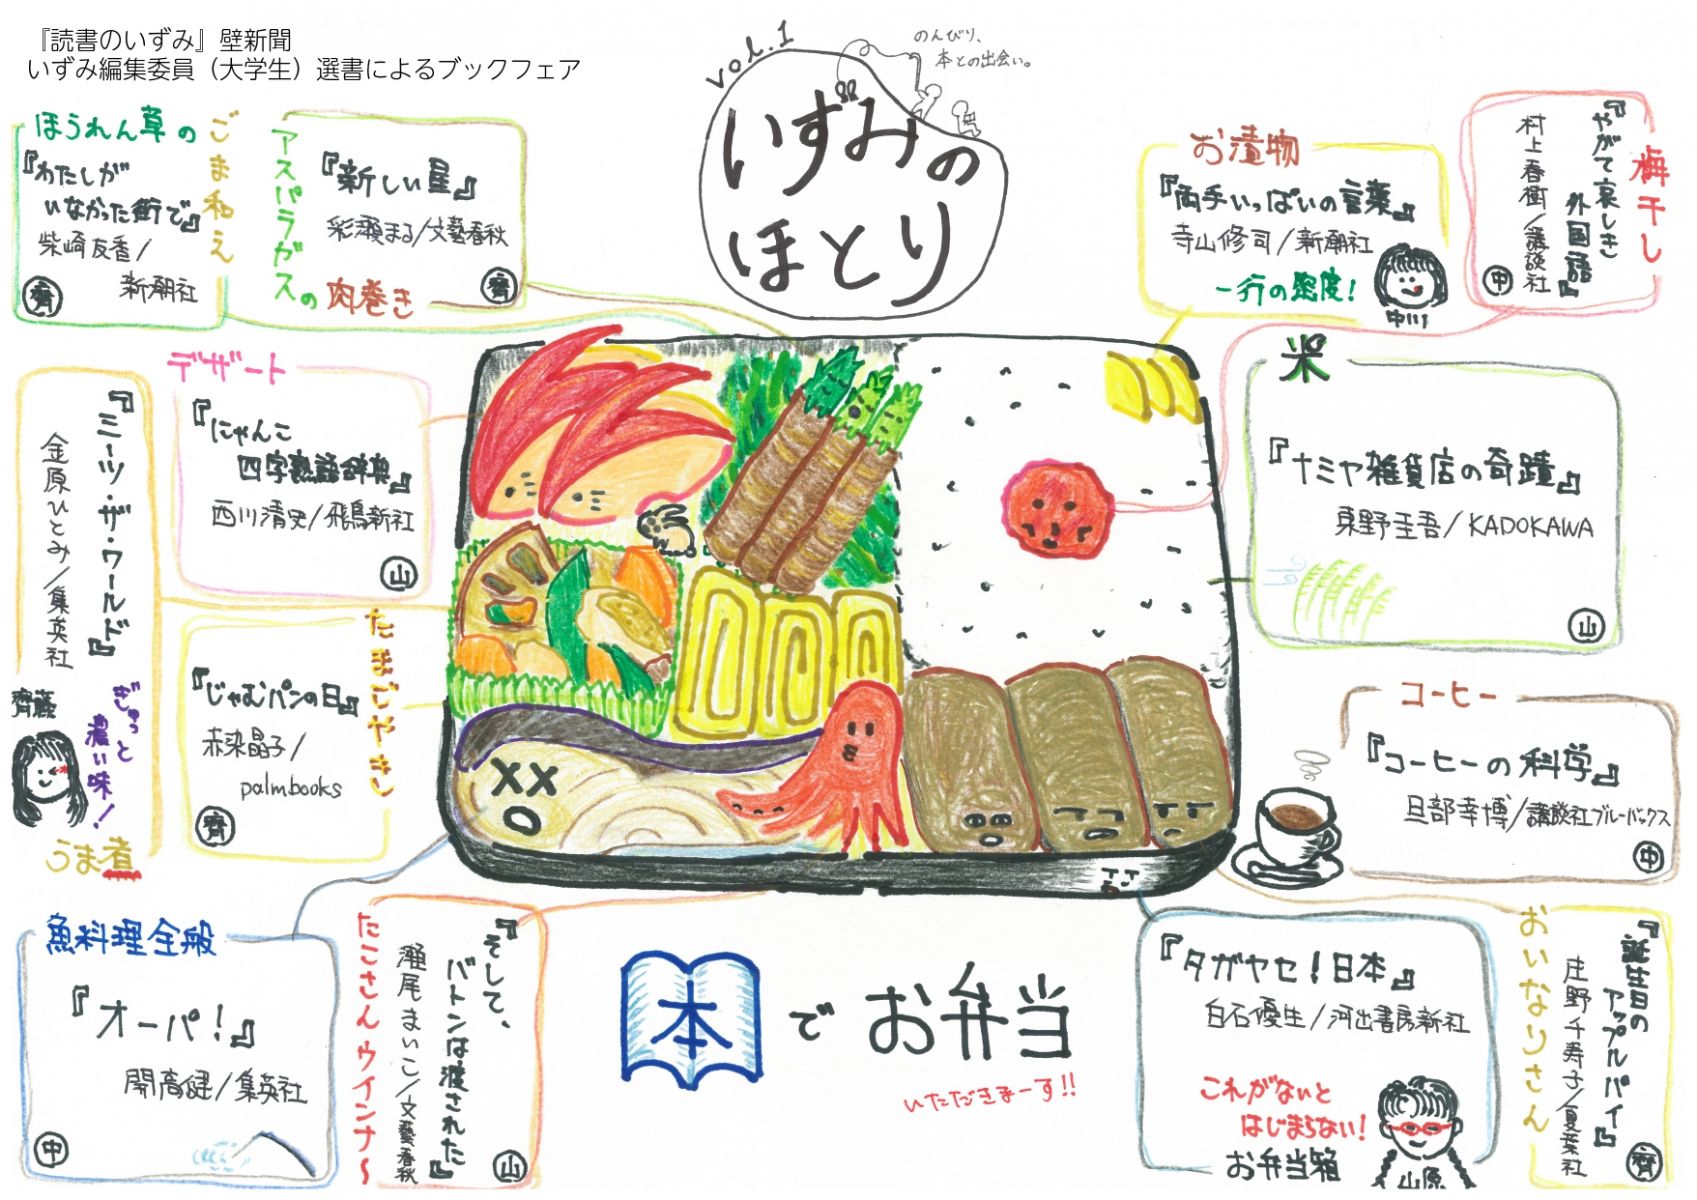 『読書のいずみ』壁新聞
いずみ編集委員（大学生）選書によるブックフェア
vol.1
いずみの
ほとり
のんびり、
本との出会い。
ほうれん草の
ごま和え
『わたしが
いなかった街で』
柴崎友香／
新潮社
齊
アスパラガスの
肉巻き
『新しい星』
彩瀬まる／文藝春秋
齊
お漬物
『両手いっぱいの言葉』
寺山修司／新潮社
一行の密度！
中川
梅干し
『やがて哀しき
外国語』
村上春樹／講談社
中
デザート
『にゃんこ
四字熟語辞典』
西川清史／飛鳥新社
山
米
『ナミヤ雑貨店の奇蹟』
東野圭吾／KADOKAWA
山
『ミーツ・ザ・ワールド』
金原ひとみ／集英社
齊藤
ぎゅっと
濃い味！
うま煮
たまごやき
『じゃむパンの日』
赤染晶子／
palmbooks
齊
コーヒー
『コーヒーの科学』
旦部幸博／講談社ブルーバックス
中
魚料理全般
『オーパ！』
開高健／集英社
中
たこさんウインナ〜
『そして、
バトンは渡された』
瀬尾まいこ／文藝春秋
山
本でお弁当
いただきまーす!!
『タガヤセ！日本』
白石優生／河出書房新社
これがないと
はじまらない！
お弁当箱
山原
おいなりさん
『誕生日の
アップルパイ』
庄野千寿子／夏葉社
齊